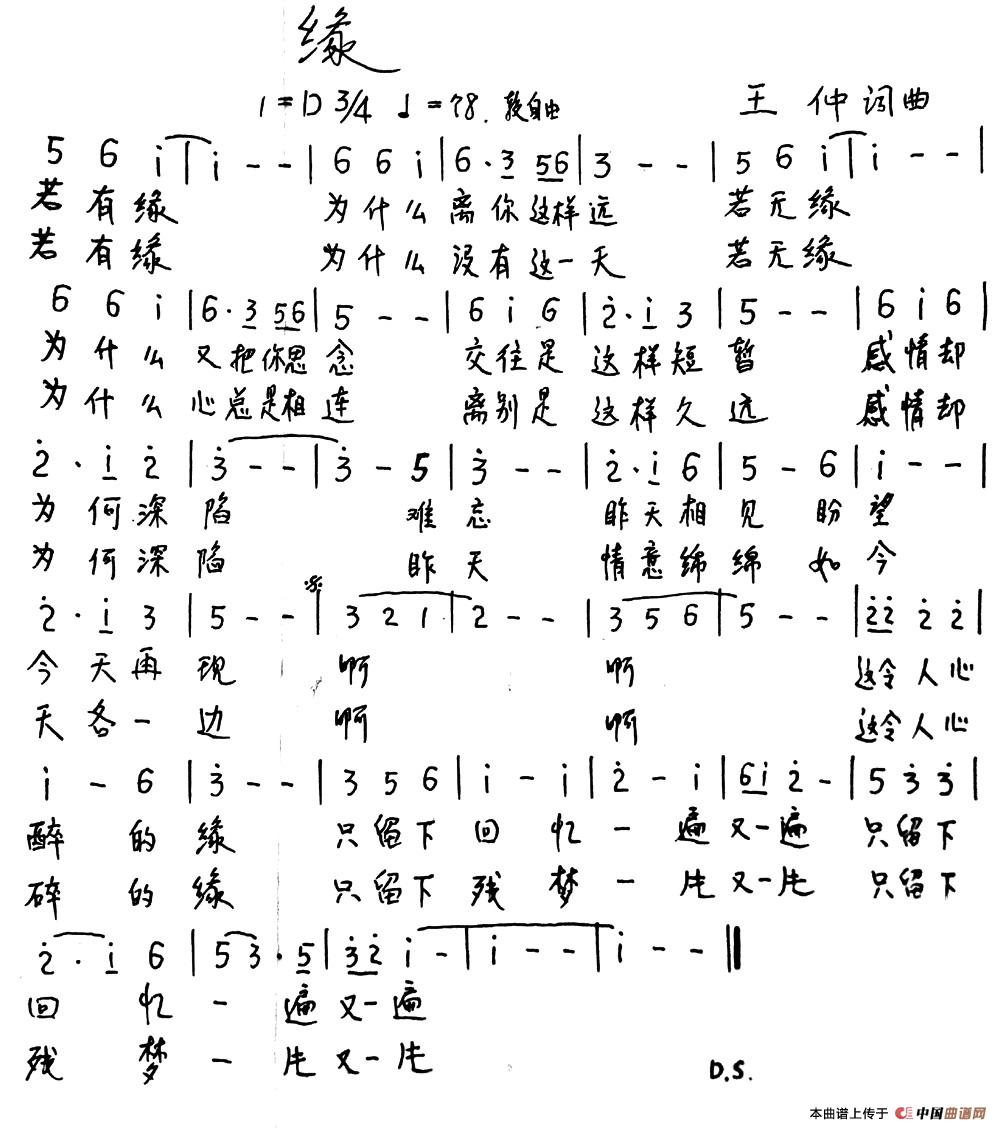 缘
1=D 3/4 ♩=78. 较自由 王 仲 词曲
5 6 i | i - - | 6 6 i | 6 · 3 56 | 3 - - | 5 6 i | i - - |
若有缘 为什么离你这样远 若无缘
若有缘 为什么没有这一天 若无缘
6 6 i | 6 · 3 56 | 5 - - | 6 i 6 | 2̇ · i 3 | 5 - - | 6 i 6 |
为什么又把你思念 交往是这样短暂 感情却
为什么心总是相连 离别是这样久远 感情却
2̇ · i 2̇ | 3̇ - - | 3̇ - 5 | 3̇ - - | 2̇ · i 6 | 5 - 6 | i - - |
为何深陷 难忘 昨天相见盼望
为何深陷 昨天 情意绵绵如今
2̇ · i 3 | 5 - - | 3 2 1 | 2 - - | 3 5 6 | 5 - - | 2̇2̇ 2̇ 2̇ |
今天再现 啊 啊 这令人心
天各一边 啊 啊 这令人心
i - 6 | 3̇ - - | 3 5 6 | i - i | 2̇ - i | 6i 2̇ - | 5 3̇ 3̇ |
醉的缘 只留下回忆一遍又一遍 只留下
碎的缘 只留下残梦一片又一片 只留下
2̇ · i 6 | 5 3 · 5 | 3̇2̇ i - | i - - | i - - ‖
回忆一遍又一遍
残梦一片又一片
D.S.
本曲谱上传于 中国曲谱网